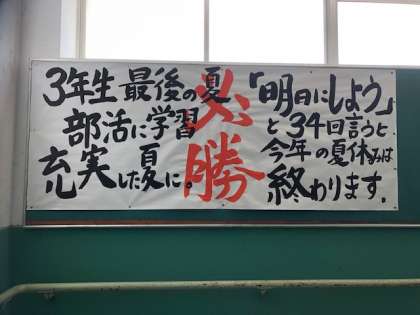 3年生最後の夏
部活に学習
充実した夏に。
必勝
「明日にしよう」
と34回言うと
今年の夏休みは
終わります.